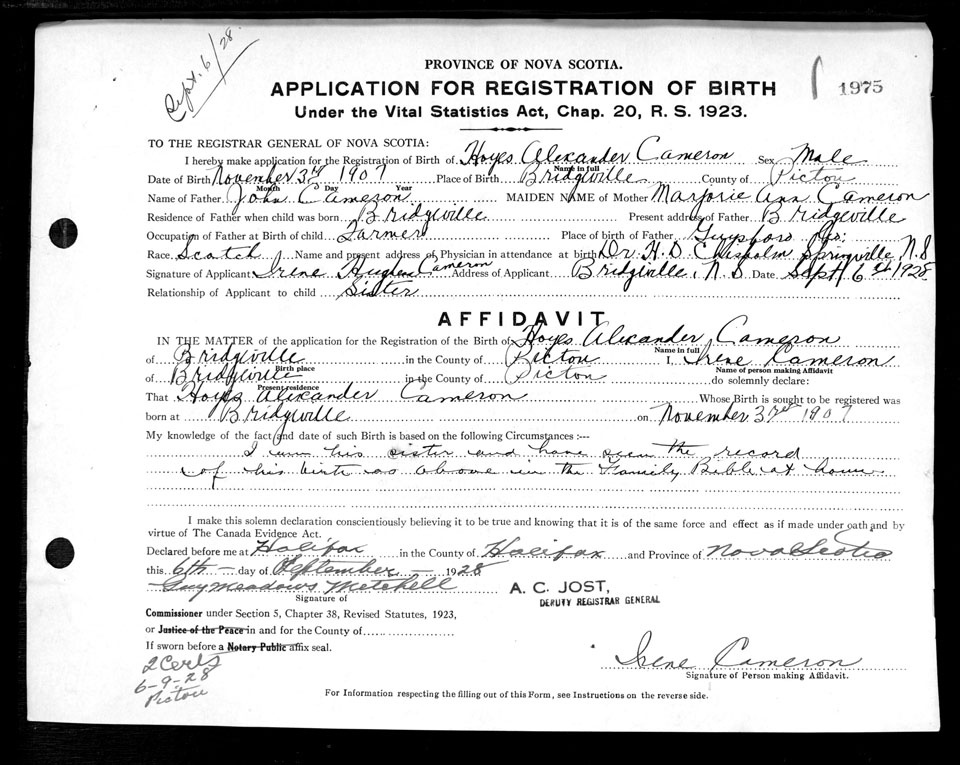 Sept. 6/28.
PROVINCE OF NOVA SCOTIA.
APPLICATION FOR REGISTRATION OF BIRTH
1975
Under the Vital Statistics Act, Chap. 20, R. S. 1923.
TO THE REGISTRAR GENERAL OF NOVA SCOTIA:
I hereby make application for the Registration of Birth of Hoyes Alexander Cameron Sex Male
Name in full
Date of Birth November 3rd 1907 Place of Birth Bridgville County of Pictou
Month Day Year
Name of Father John Cameron MAIDEN NAME of Mother Marjorie Ann Cameron
Residence of Father when child was born Bridgville Present address of Father Bridgeville
Occupation of Father at Birth of child Farmer Place of birth of Father Guysboro Co:
Race Scotch Name and present address of Physician in attendance at birth Dr. H. D. Chisholm Springville N.S
Signature of Applicant Irene Cameron Address of Applicant Bridgville, N.S Date Sept 6th 1928
Relationship of Applicant to child Sister
AFFIDAVIT
IN THE MATTER of the application for the Registration of the Birth of Hoyes Alexander Cameron
Name in full
of Bridgville in the County of Picton I, Irene Cameron
Birth place Name of person making Affidavit
of Bridgeville in the County of Picton do solemnly declare:
Present residence
That Hoyes Alexander Cameron Whose Birth is sought to be registered was
born at Bridgville on November 3rd 1907
My knowledge of the fact and date of such Birth is based on the following Circumstances :---
I am his sister and have seen the record
of his birth as above in the Family Bible at home.
I make this solemn declaration conscientiously believing it to be true and knowing that it is of the same force and effect as if made under oath and by
virtue of The Canada Evidence Act.
Declared before me at Halifax in the County of Halifax and Province of Nova Scotia
this 6th day of September 1928
Guy Meadows Mitchell
A. C. JOST,
DEPUTY REGISTRAR GENERAL
Signature of
Commissioner under Section 5, Chapter 38, Revised Statutes, 1923,
or Justice of the Peace in and for the County of
If sworn before a Notary Public affix seal.
Irene Cameron
Signature of Person making Affidavit.
2 Certs
6-9-28
Pictou
For Information respecting the filling out of this Form, see Instructions on the reverse side.